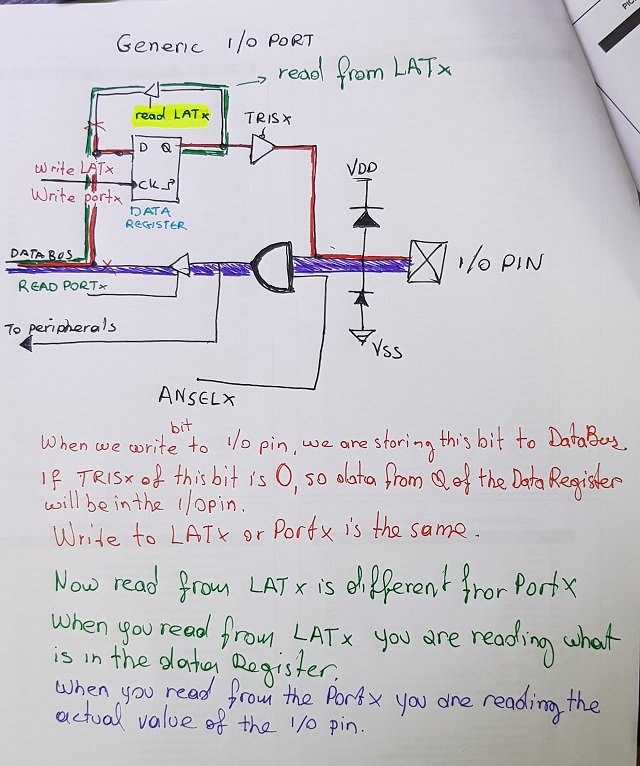 Generic I/O PORT
read from LATx
read LATx
TRISx
D Q
Write LATx
Write portx
CK
DATA
REGISTER
VDD
DATABUS
READ PORTx
I/O PIN
To peripherals
VSS
ANSELX
bit
When we write to I/O pin, we are storing this bit to DataBus
If TRISx of this bit is 0, so data from Q of the Data Register
will be in the I/O pin.
Write to LATx or Portx is the same.
Now read from LATx is different fror PortX
When you read from LATx you are reading what
is in the data Register.
When you read from the Portx you are reading the
actual value of the I/O pin.